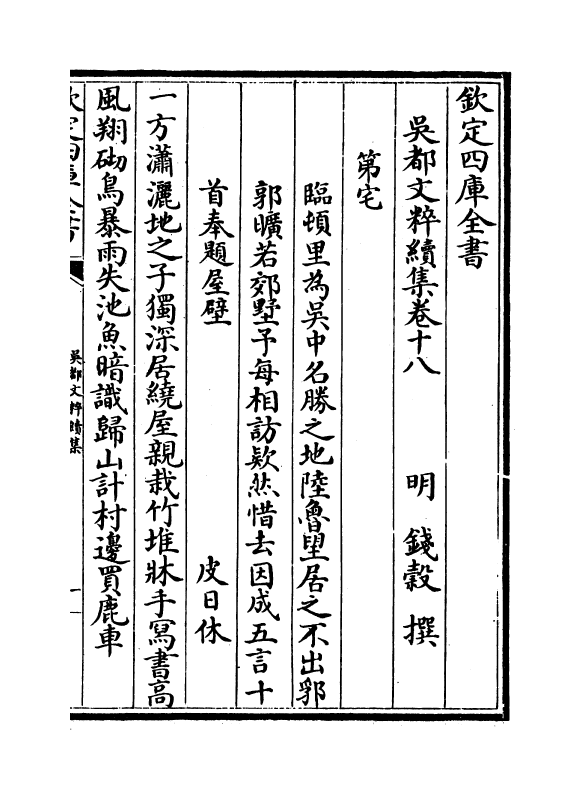 欽定四庫全書
吳都文粹續集卷十八　　明　錢穀　撰
第宅
臨頓里為吳中名勝之地陸魯望居之不出郛
郭曠若郊墅予每相訪欵然惜去因成五言十
首奉題屋壁　　皮日休
一方瀟灑地之子獨深居繞屋親栽竹堆牀手寫書高
風翔砌鳥暴雨失池魚暗識歸山計村邊買鹿車
欽定四庫全書
吳都文粹續集
一